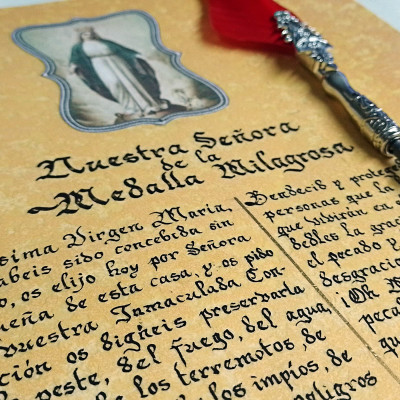 Nuestra Señora
de la
Medalla Milagrosa
sima Virgen María,
abeis sido concebida sin
o, os elijo hoy por Señora
ueña de esta casa, y os pido
vuestra Inmaculada Con-
ción os digneis preservarla
peste, del fuego, del agua,
de los terremotos, de
los impíos, de
peligros
Bendecid y protege
personas que la
que vivirán en el
dedles la graci
el pecado y
desgracia
¡Oh M
pecad
qu